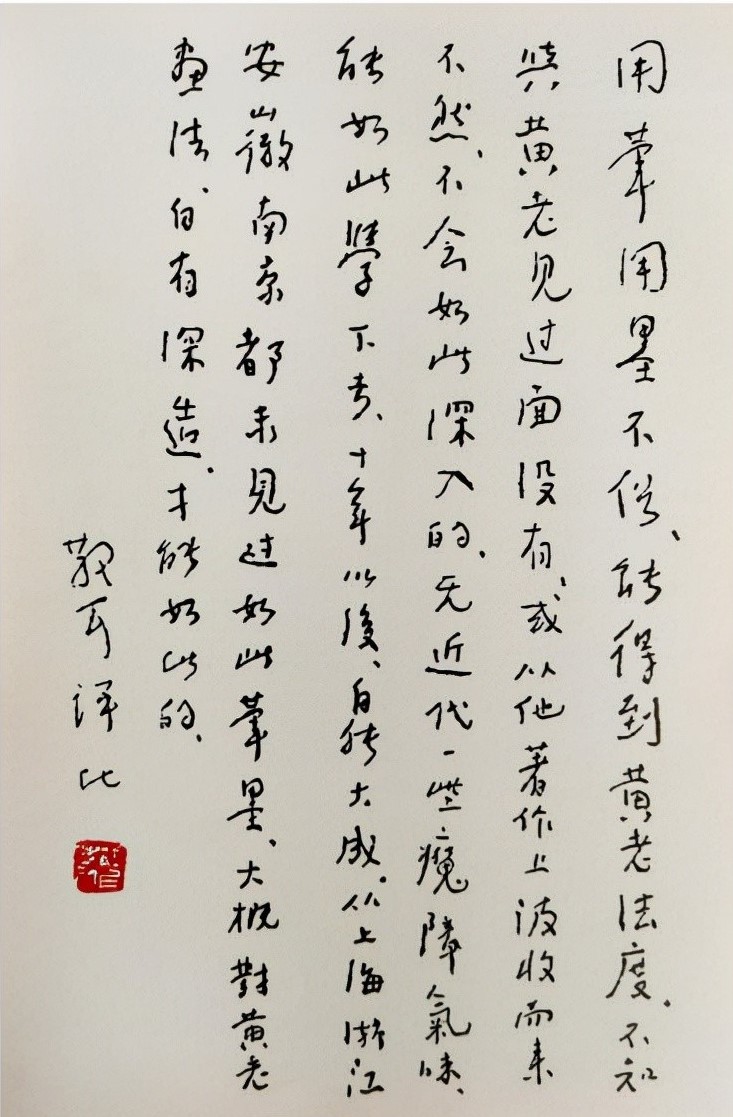 用筆用墨不俗、能得到黄老法度、不知
與黄老见过面没有、或从他著作上汲收而来
不然、不会如此深入的、无近代一些魔障氣味、
能如此學下去、十年以後、自能大成、从上海浙江
安徽南京都未見过如此筆墨、大概對黄老
画法、自有深造、才能如此的、
散耳評比